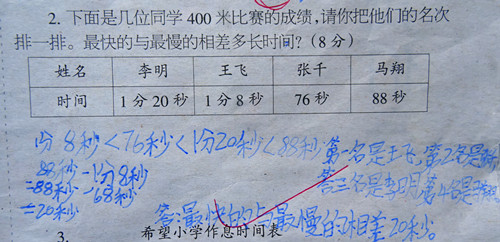 2. 下面是几位同学 400 米比赛的成绩,请你把他们的名次
排一排。最快的与最慢的相差多长时间?(8 分)
姓名 李明 王飞 张千 马翔
时间 1 分 20 秒 1 分 8 秒 76 秒 88 秒
1分 8秒<76秒<1分20秒<88秒 第一名是王飞,第2名是
88秒-1分8秒 第三名是李明,第4名是
=88秒-68秒
=20秒
答:最快的与最慢的相差20秒。
3. 希望小学作息时间表